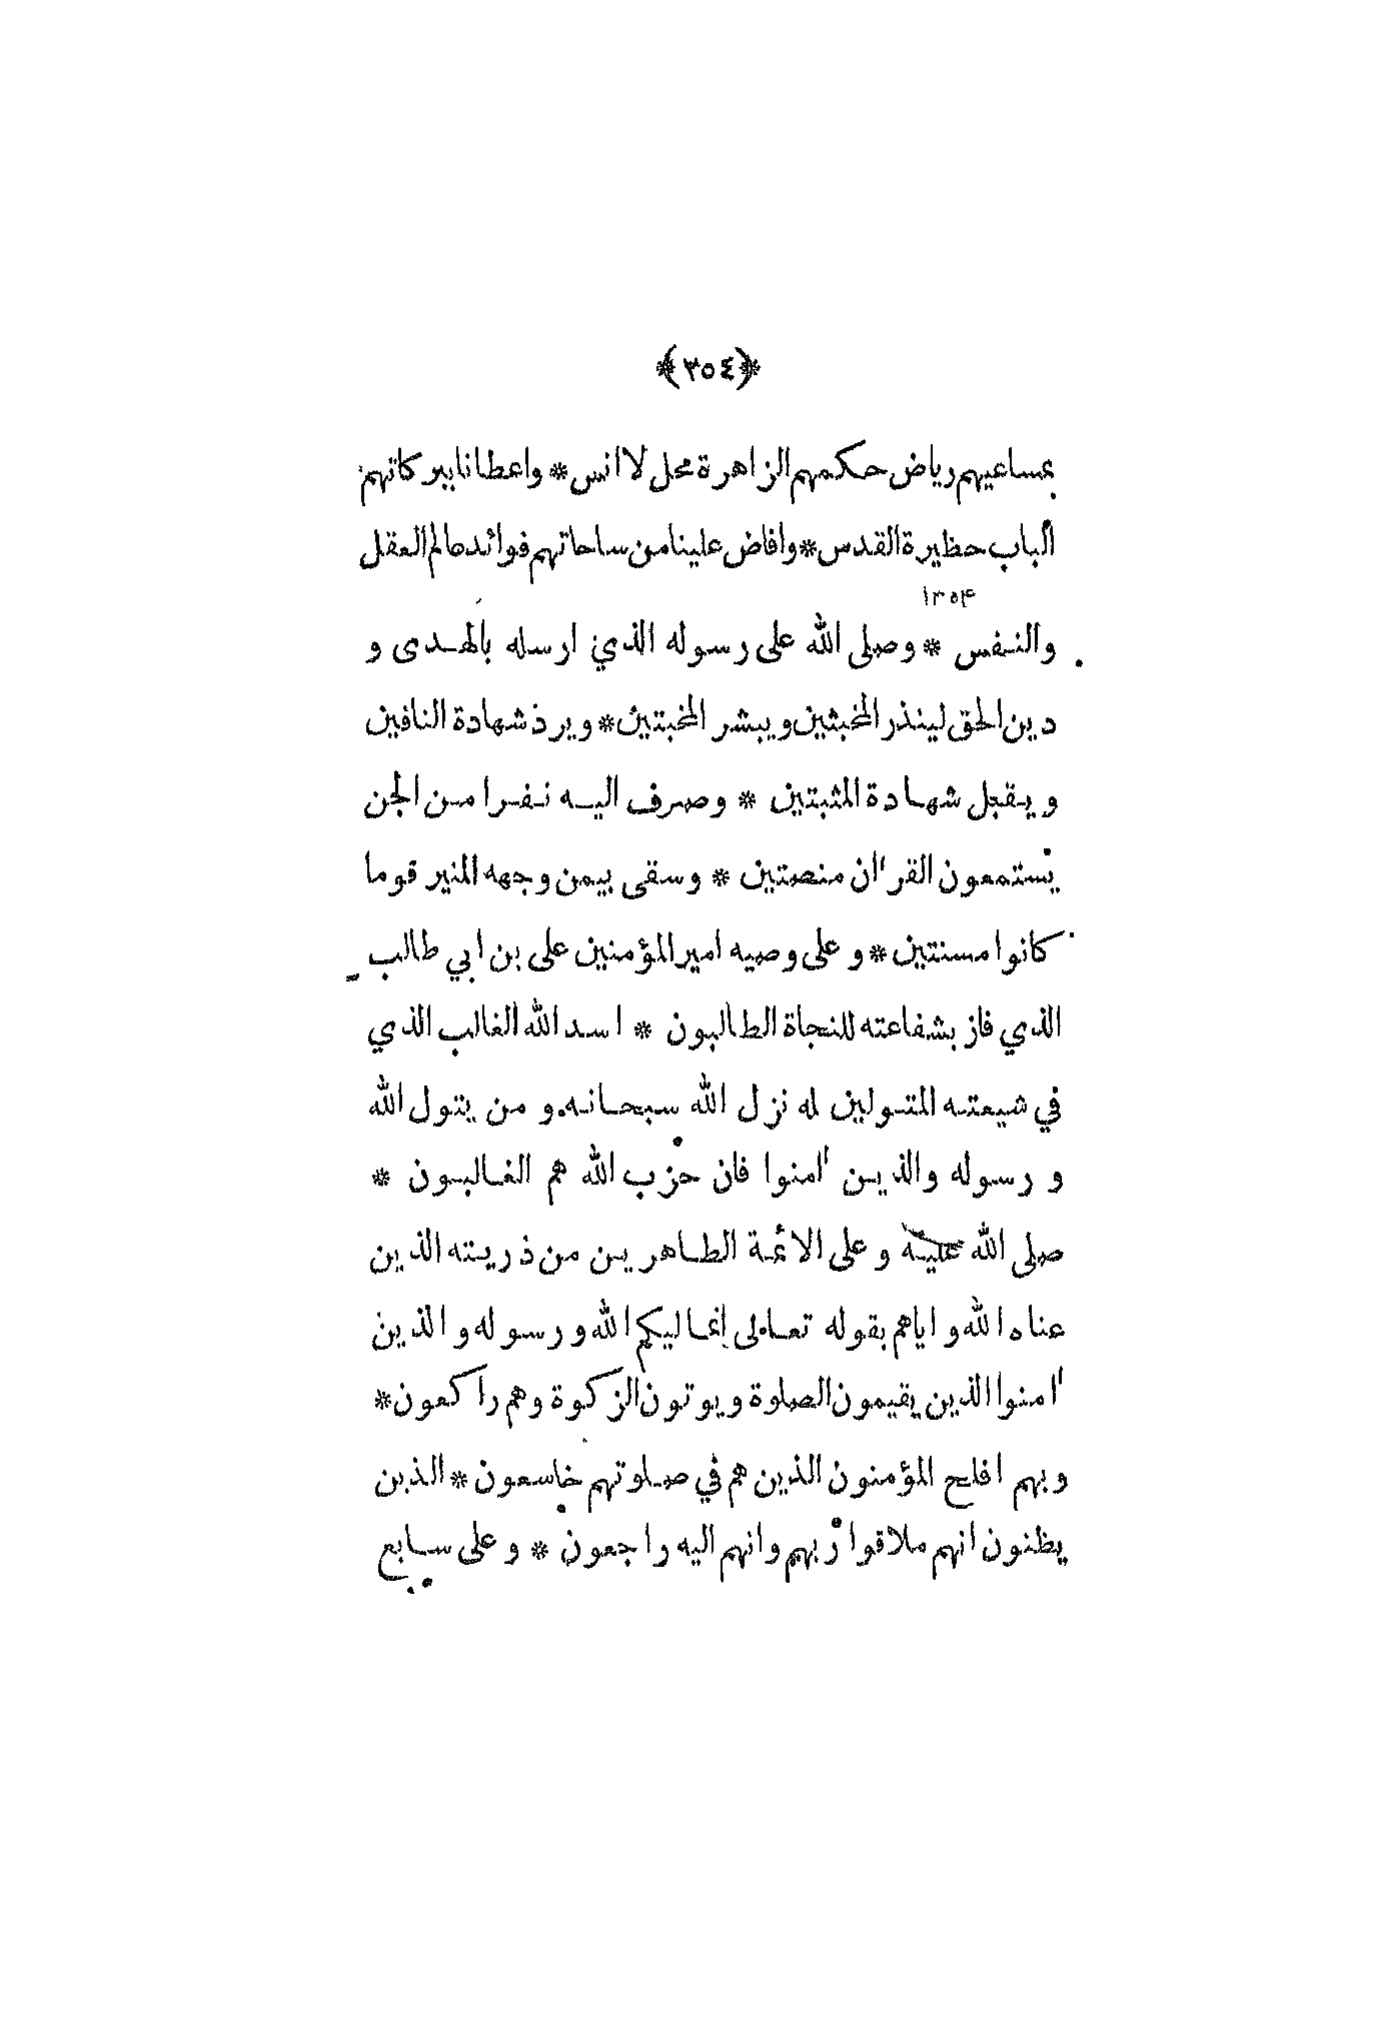 *(٣٥٤)*
بمساعيهم رياض حكمهم الزاهرة محل لا انس * واعطانا ببركاتهم
الباب حظيرة القدس * وافاض علينا من ساحاتهم فوائد عالم العقل
١٣٥۴
والنفس * وصلى الله على رسوله الذي ارسله بالهدى و
دين الحق لينذر المخبثين ويبشر المخبتين * ويرد شهادة النافين
ويقبل شهادة المثبتين * وصرف اليه نفرا من الجن
يستمعون القرآن منصتين * وسقى بيمن وجهه المنير قوما
كانوا مسنتين * و على وصيه امير المؤمنين على بن ابي طالب
الذي فاز بشفاعته للنجاة الطالبون * اسد الله الغالب الذي
في شيعته المتولين له نزل الله سبحانه و من يتول الله
و رسوله والذين اٰمنوا فان حزب الله هم الغالبون *
صلى الله عليه و على الائمة الطاهرين من ذريته الذين
عناه الله و اياهم بقوله تعالى انما وليكم الله و رسوله و الذين
اٰمنوا الذين يقيمون الصلوة ويوتون الزكوة وهم راكعون *
وبهم افلح المؤمنون الذين هم في صلوتهم خاسعون * الذين
يظنون انهم ملاقوا ربهم وانهم اليه راجعون * و على سابع